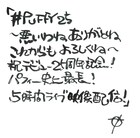 「#PUFFY25
〜悪いわね、ありがとね、
これからもよろしくね〜」
祝デビュー25周年記念!
パフィー史上最長!
5時間ライブ映像配信!